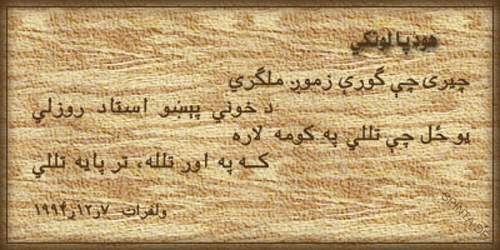 هوډ پالونکي
چیری چې ګورې زموږ ملګري
د خوني پېښو استاد روزلي
یو ځل چې تللي په کومه لاره
که په اور تلله، تر پایه تللي
ولفرات ۷ر۱۲ر۱۹۹۴